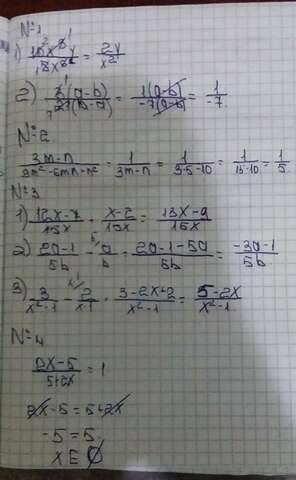 N=1
1) 10x⁶y / 18x⁸² = 2y / x²
2) 3(a-b) / 21(b-a) = 1(a-b) / -7(a-b) = 1 / -7
N=2
3m-n / 9m²-6mn+n² = 1 / 3m-n = 1 / 3·5-10 = 1 / 15-10 = 1 / 5
N=3
1) 12x-7 / 15x + x-2 / 15x = 13x-9 / 15x
2) 2a-1 / 5b - a / b = 2a-1-5a / 5b = -3a-1 / 5b
3) 3 / x²-1 - 2 / x+1 = 3-2x+2 / x²-1 = 5-2x / x²-1
N=4
2x-5 / 5+2x = 1
2x-5 = 5+2x
-5 = 5
x ∈ ∅